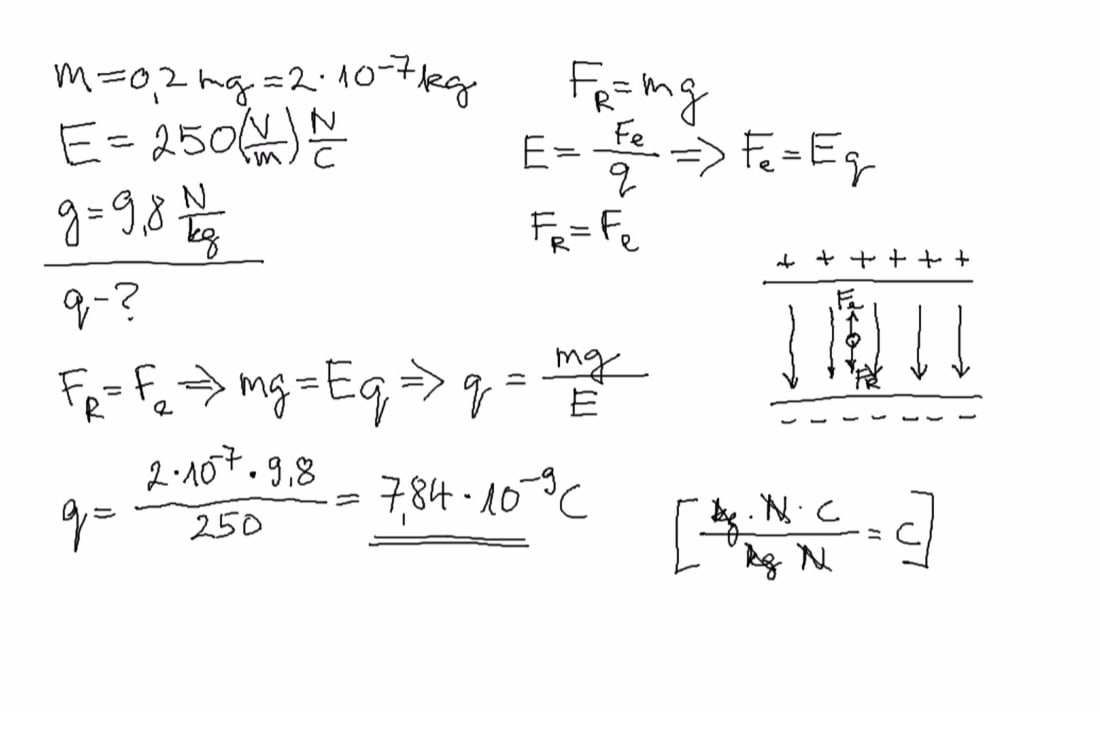 m=0,2 mg=2·10⁻⁷kg
E=250(V/m) N/C
g=9,8 N/kg
q-?
F_R=mg
E=F_e/q => F_e=Eq
F_R=F_e
+ + + + + +
F_e
F_R
- - - - - -
F_R=F_e => mg=Eq => q=mg/E
q=2·10⁻⁷·9,8/250=7,84·10⁻⁹C
[kg·N·C/kg N=C]